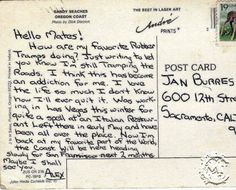 SANDY BEACHES
OREGON COAST
THE BEST IN LASER ART
André
PRINTS
19
Hello Mates!
How are my favorite Rubber
Tramps doing? Just writing to let
you know I'm still Tramping the
Roads. I think this has become
an addiction for me. I love
the life so much I don't know
how I'll ever quit it. Was work-
ing in Las Vegas this year for
quite a spell at an Italian Restaur-
ant. Left there in early May and have
been all over the place. Now I'm
back at my favorite part of the world,
the Coast. Will be here heading
slowly for San Francisco next 2 months.
Maybe I shall
see you.
Alex
POST CARD
JAN BURRES
600 12th Street
SACRAMENTO, CAL
9